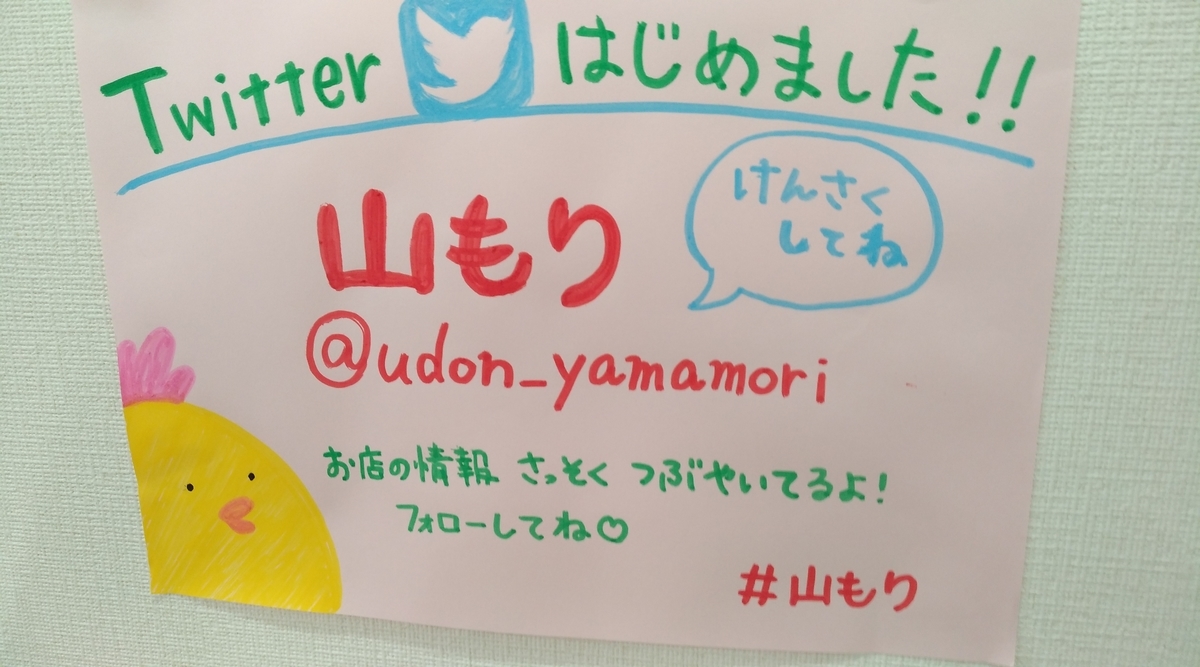 Twitter はじめました!!
山もり
けんさく
してね
@udon_yamamori
お店の情報 さっそく つぶやいてるよ!
フォローしてね♡
#山もり